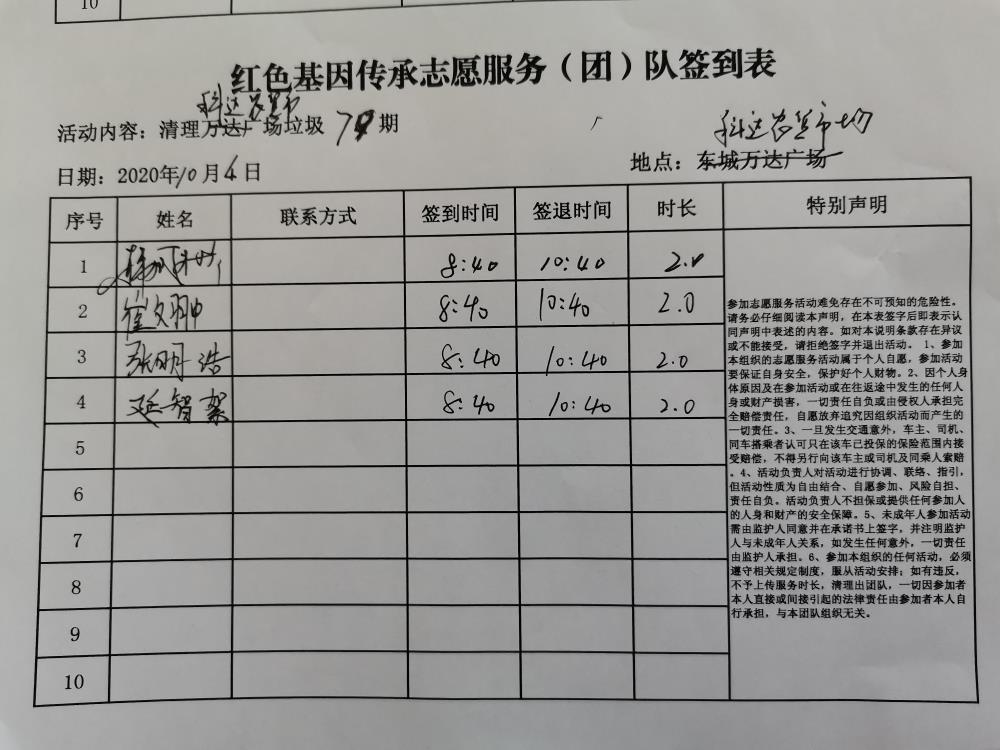 10
红色基因传承志愿服务（团）队签到表
科达农贸市
活动内容：清理万达广场垃圾 79 期
科达农贸市场
日期：2020年10月4日
地点：东城万达广场
序号 姓名 联系方式 签到时间 签退时间 时长 特别声明
1 8:40 10:40 2.0
2 崔文翀 8:40 10:40 2.0
3 张明浩 8:40 10:40 2.0
4 延智絮 8:40 10:40 2.0
5
6
7
8
9
10
参加志愿服务活动难免存在不可预知的危险性。
请务必仔细阅读本声明，在本表签字后即表示认
同声明中表述的内容。如对本说明条款存在异议
或不能接受，请拒绝签字并退出活动。 1、参加
本组织的志愿服务活动属于个人自愿，参加活动
要保证自身安全，保护好个人财物。2、因个人身
体原因及在参加活动或在往返途中发生的任何人
身或财产损害，一切责任自负或由侵权人承担完
全赔偿责任，自愿放弃追究因组织活动而产生的
一切责任。3、一旦发生交通意外，车主、司机、
同车搭乘者认可只在该车已投保的保险范围内接
受赔偿，不得另行向该车主或司机及同乘人索赔
。4、活动负责人对活动进行协调、联络、指引，
但活动性质为自由结合、自愿参加、风险自担、
责任自负。活动负责人不担保或提供任何参加人
的人身和财产的安全保障。5、未成年人参加活动
需由监护人同意并在承诺书上签字，并注明监护
人与未成年人关系，如发生任何意外，一切责任
由监护人承担。6、参加本组织的任何活动，必须
遵守相关规定制度，服从活动安排；如有违反，
不予上传服务时长，清理出团队，一切因参加者
本人直接或间接引起的法律责任由参加者本人自
行承担，与本团队组织无关。